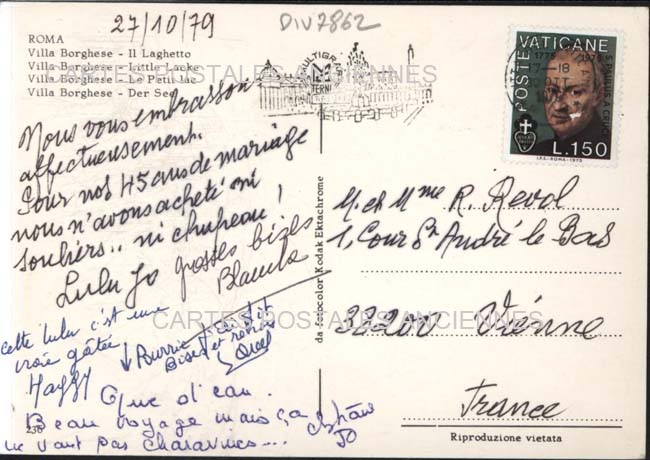 27/10/79
DIV7862
ROMA
Villa Borghese - Il Laghetto
Villa Borghese - Little Lacke
Villa Borghese - Le Petit lac
Villa Borghese - Der See
CARTES POSTALES ANCIENNES
POSTE VATICANE
1775 1975
S. PAULUS A CRUCE
L.150
I.P.S.-ROMA-1975
Nous vous embrassons
affectueusement.
Pour nos 45 ans de mariage
nous n'avons acheté ni
souliers.. ni chapeau !
Lulu Jo grosses bizes
Blanche
M. et Mme R. Revol
1, Cour St André le Bas
38200 Vienne
France
da fotocolor Kodak Ektachrome
CARTES POSTALES ANCIENNES
cette lulu c'est une
vraie gâtée
Maggy
Que d'eau.
Beau voyage mais ça
ne vaut pas charavines...
JO
236
Riproduzione vietata